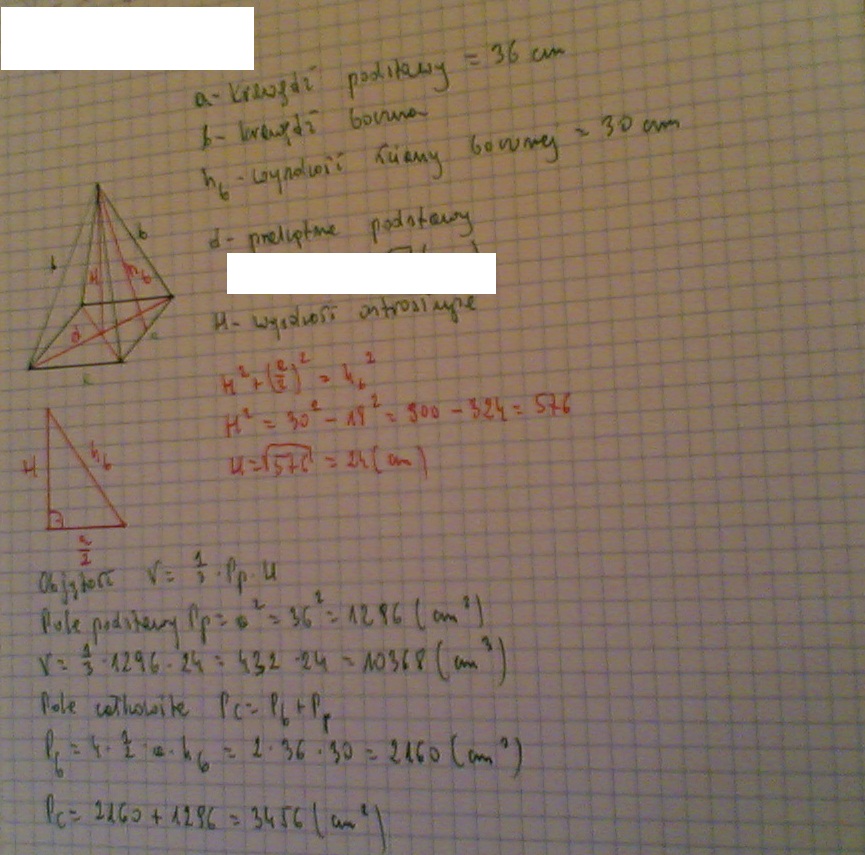 a - krawędź podstawy = 36 cm
b - krawędź boczna
h_b - wysokość ściany bocznej = 30 cm
d - przekątna podstawy
H - wysokość ostrosłupa
b
b
H
h_b
d
a
a
H² + (a/2)² = h_b²
H² = 30² - 18² = 900 - 324 = 576
H = √576 = 24 (cm)
H
h_b
a/2
Objętość V = 1/3 · Pp · H
Pole podstawy Pp = a² = 36² = 1296 (cm²)
V = 1/3 · 1296 · 24 = 432 · 24 = 10368 (cm³)
Pole całkowite Pc = P_b + P_p
P_b = 4 · 1/2 · a · h_b = 2 · 36 · 30 = 2160 (cm²)
Pc = 2160 + 1296 = 3456 (cm²)